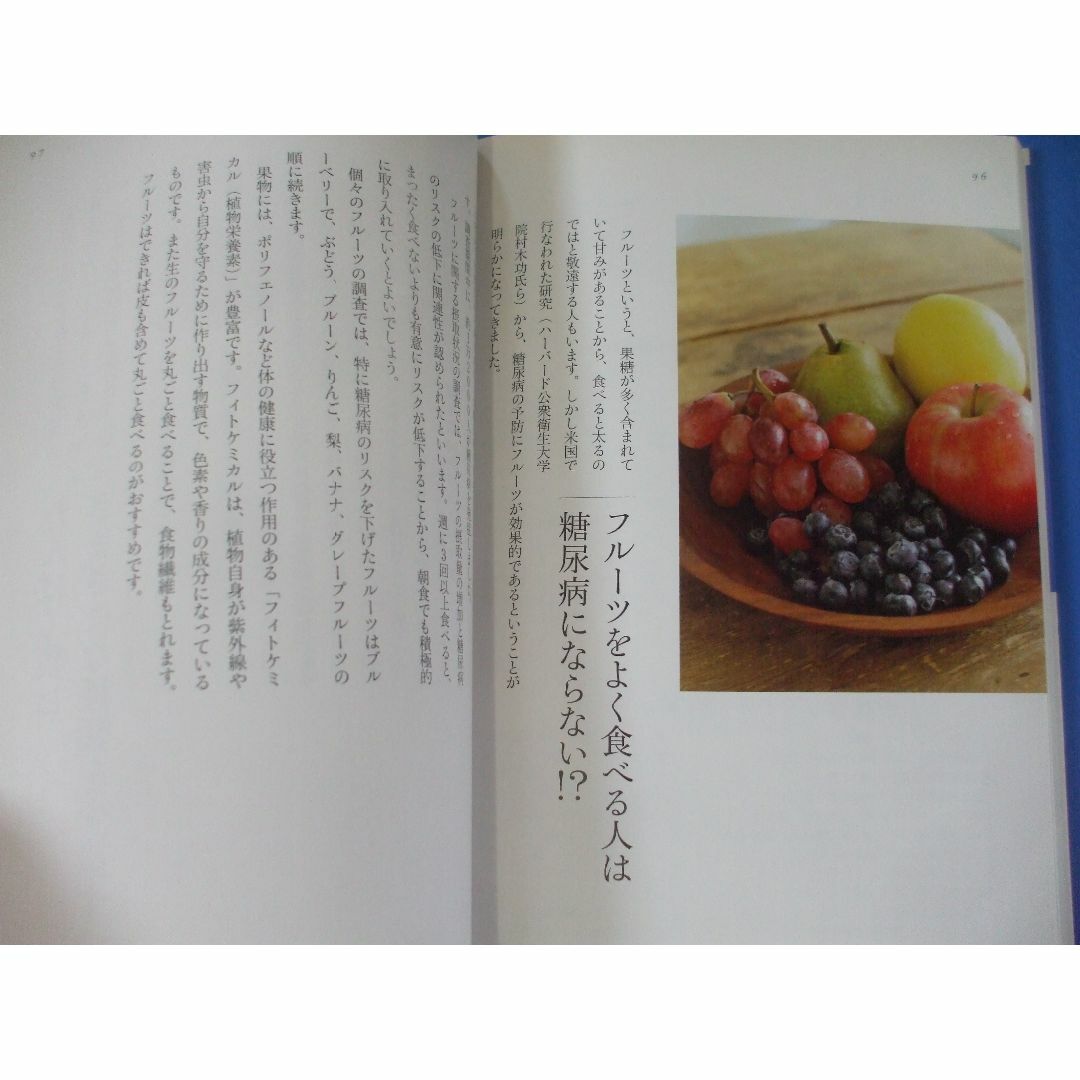 96
フルーツをよく食べる人は
糖尿病にならない!?
フルーツというと、果糖が多く含まれて
いて甘みがあることから、食べると太るの
ではと敬遠する人もいます。しかし米国で
行なわれた研究（ハーバード公衆衛生大学
院村木功氏ら）から、糖尿病の予防にフルーツが効果的であるということが
明らかになってきました。
フルーツに関する摂取状況の調査では、フルーツの摂取量の増加と糖尿病
のリスクの低下に関連性が認められたといいます。週に3回以上食べると、
まったく食べないよりも有意にリスクが低下することから、朝食でも積極的
に取り入れていくとよいでしょう。
個々のフルーツの調査では、特に糖尿病のリスクを下げたフルーツはブル
ーベリーで、ぶどう、プルーン、りんご、梨、バナナ、グレープフルーツの
順に続きます。
果物には、ポリフェノールなど体の健康に役立つ作用のある「フィトケミ
カル（植物栄養素）」が豊富です。フィトケミカルは、植物自身が紫外線や
害虫から自分を守るために作り出す物質で、色素や香りの成分になっている
ものです。また生のフルーツを丸ごと食べることで、食物繊維もとれます。
フルーツはできれば皮も含めて丸ごと食べるのがおすすめです。
97